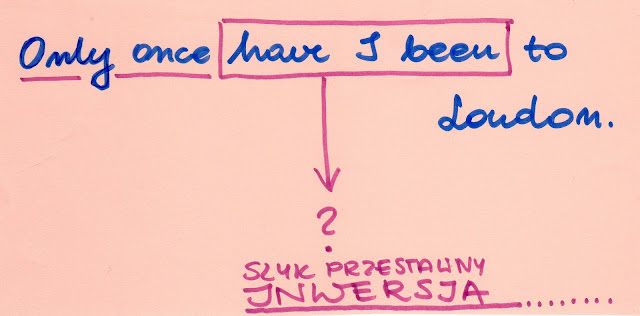 Only once have I been to
London.
?
SZYK PRZESTAWNY
INWERSJA........